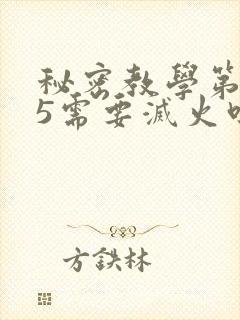 秘密教學第
5需要滅火
方鉄林